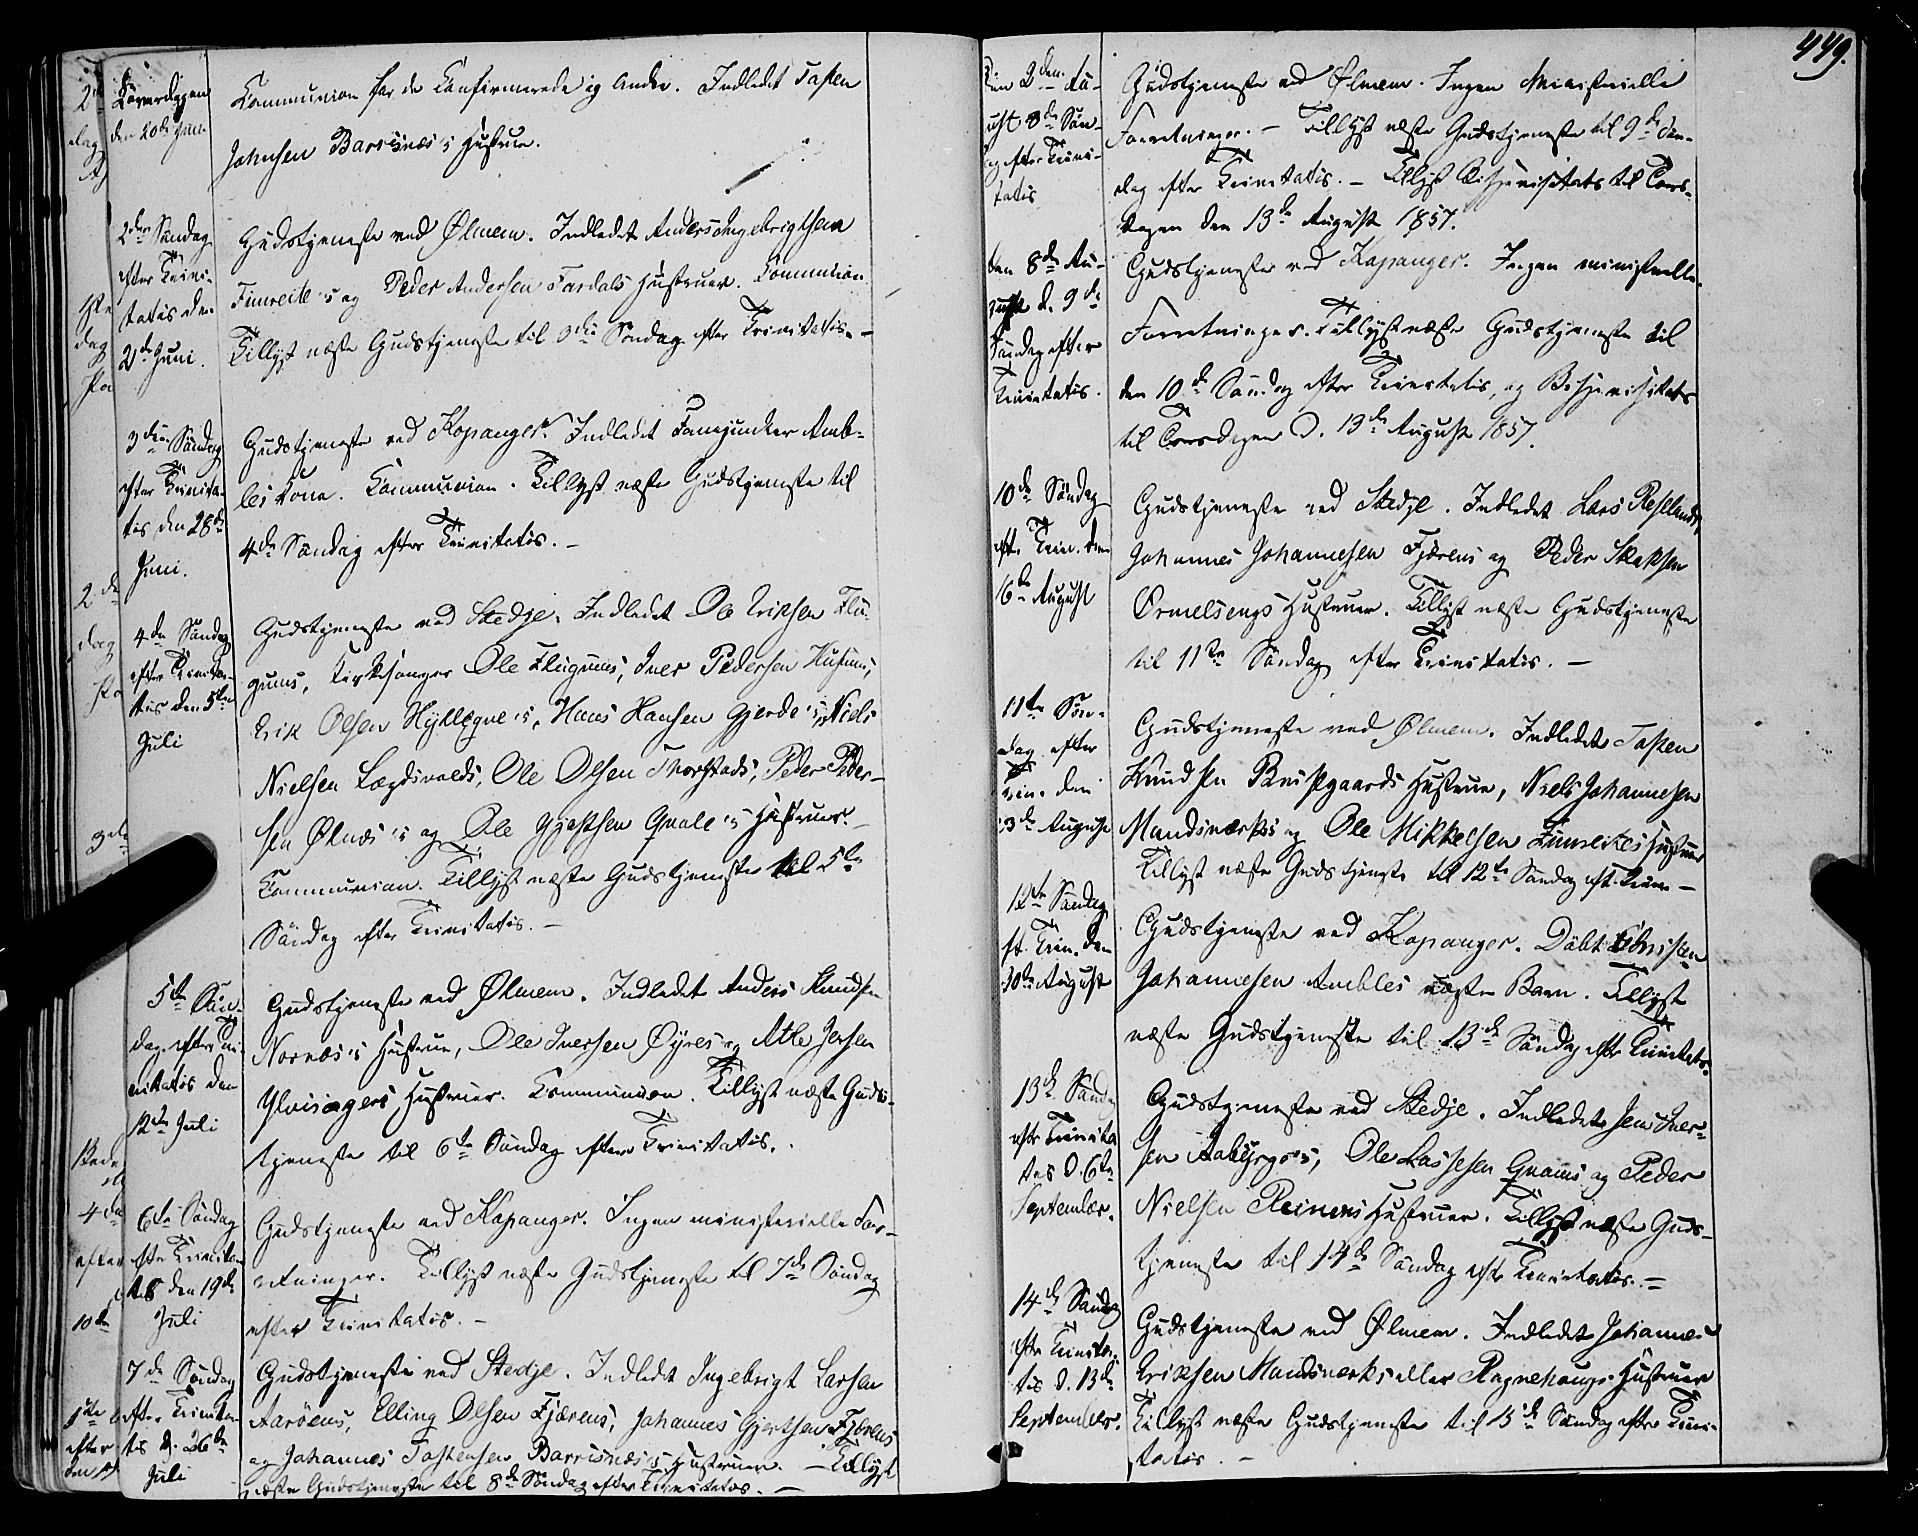 449.
Løverdagen
den 20de Juni
Communion for de Confirmerede og Andre. Indledt Tosten
Johnsen Barsnæs's Hustrue.
2den Søndag
efter Trini-
tatis den
21de Juni.
Gudstjeneste ved Ølmem. Indledet Anders Ingebrigtsen
Fimreite's og Peder Andersen Fardals Hustruer. Communion
Tillyst næste Gudstjeneste til 3die Søndag efter Trinitatis. —
3die Søndag
efter Trinita-
tis den 28de
Juni.
Gudstjeneste ved Kopanger. Indledet Fanejunker Amb-
les Kone. Communion. Tillyst næste Gudstjeneste til
4de Søndag efter Trinitatis. —
4de Søndag
efter Trinita-
tis den 5te
Juli
Gudstjeneste ved Stedje. Indledet Ole Eriksen Flu-
gums, Kirkesanger Ole Flugums, Iver Pedersen Husums,
Erik Olsen Hyllegne's, Hans Hansen Gjerde's, Niels
Nielsen Lægdsvolds, Ole Olsen Thorstads, Peder Peder-
sen Ølnæs's og Ole Gjertsen Qvale's Hustruer. —
Communion. Tillyst næste Gudstjeneste til 5te
Søndag efter Trinitatis. —
5te Søn-
dag efter Tri-
nitatis den
12te Juli
Gudstjeneste ved Ølmem. Indledet Anders Knudsen
Nornæs's Hustrue, Ole Iversen Øyres og Atle Jensen
Ylvisagers Hustruer. Communion. Tillyst næste Guds-
tjeneste til 6te Søndag efter Trinitatis.
6te Søndag
efter Trinita-
tis den 19de
Juli
Gudstjeneste ved Kopanger. Ingen ministerielle For-
retninger. Tillyst næste Gudstjeneste til 7de Søndag
efter Trinitatis. —
7de Søndag
efter Trinita-
tis d. 26de
Juli
Gudstjeneste ved Stedje. Indledt Ingebrigt Larsen
Aarøens, Elling Olsen Fjærens, Johannes Gjertsen Fjærens
og Johannes Tostensen Barsnæs's Hustruer. — Tillyst
næste Gudstjeneste til 8de Søndag efter Trinitatis. —
Den 2den Au-
gust 8de Søn-
dag efter Trini-
tatis
Gudstjeneste ved Ølmem. Ingen Ministerielle
Forretninger. — Tillyst næste Gudstjeneste til 9de Søn-
dag efter Trinitatis. — Tillyst Bispevisitats til Tors-
dagen den 13de August 1857.
den 8de Au-
gust d. 9de
Søndag efter
Trinitatis.
Gudstjeneste ved Kopanger. Ingen ministerielle
Forretninger. Tillyst næste Gudstjeneste til
den 10de Søndag efter Trinitatis, og Bispevisitats
til Torsdagen d. 13de August 1857.
10de Søndag
efter Trin. den
16de August
Gudstjeneste ved Stedje. Indledet Lars Røslands,
Johannes Johannesen Fjærens og Peder
Ørmelsengs Hustruer. Tillyst næste Gudstjeneste
til 11te Søndag efter Trinitatis. —
11te Søn-
dag efter
Trin. den
23de August
Gudstjeneste ved Ølmem. Indledet Tosten
Knudsen Hustrue, Niels Johannesen
Mundsværks og Ole Mikkelsen Fimreites Hustruer
Tillyst næste Gudstjeneste til 12te Søndag eft. Trin. —
12te Søndag
eft. Trin. den
30de August
Gudstjeneste ved Kopanger. Døbt Christen
Johannesen Ambles ægte Barn. Tillyst
næste Gudstjeneste til 13de Søndag efter Trinitatis.
13de Søndag
efter Trinita
tis d. 6te
September.
Gudstjeneste ved Stedje. Indledet Jens Iver-
sen Aabjørge's, Ole Lassesen Qvams og Peder
Nielsen Reinens Hustruer. Tillyst næste Guds-
tjeneste til 14de Søndag efter Trinitatis. —
14de Søndag
efter Trinita-
tis d. 13de
September.
Gudstjeneste ved Ølmem. Indledet Johannes
Eriksen Mundsværks eller Ragnehaugs Hustrue
Tillyst næste Gudstjeneste til 15de Søndag efter Trini-
tatis. —